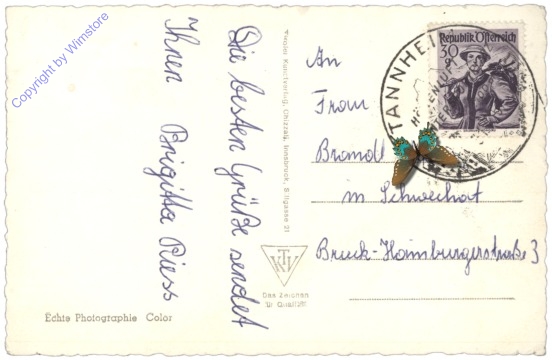 Copyright by Wimstore
Die besten Grüße sendet
Ihnen Brigitta Riess
Tiroler Kunstverlag, Chizzali, Innsbruck, Sillgasse 21
An
Frau
Brandl
in Schwechat
Bruck-Hainburgerstraße 3
Republik Österreich
30
TANNHEI
TKV
Das Zeichen
für Qualität
Echte Photographie Color